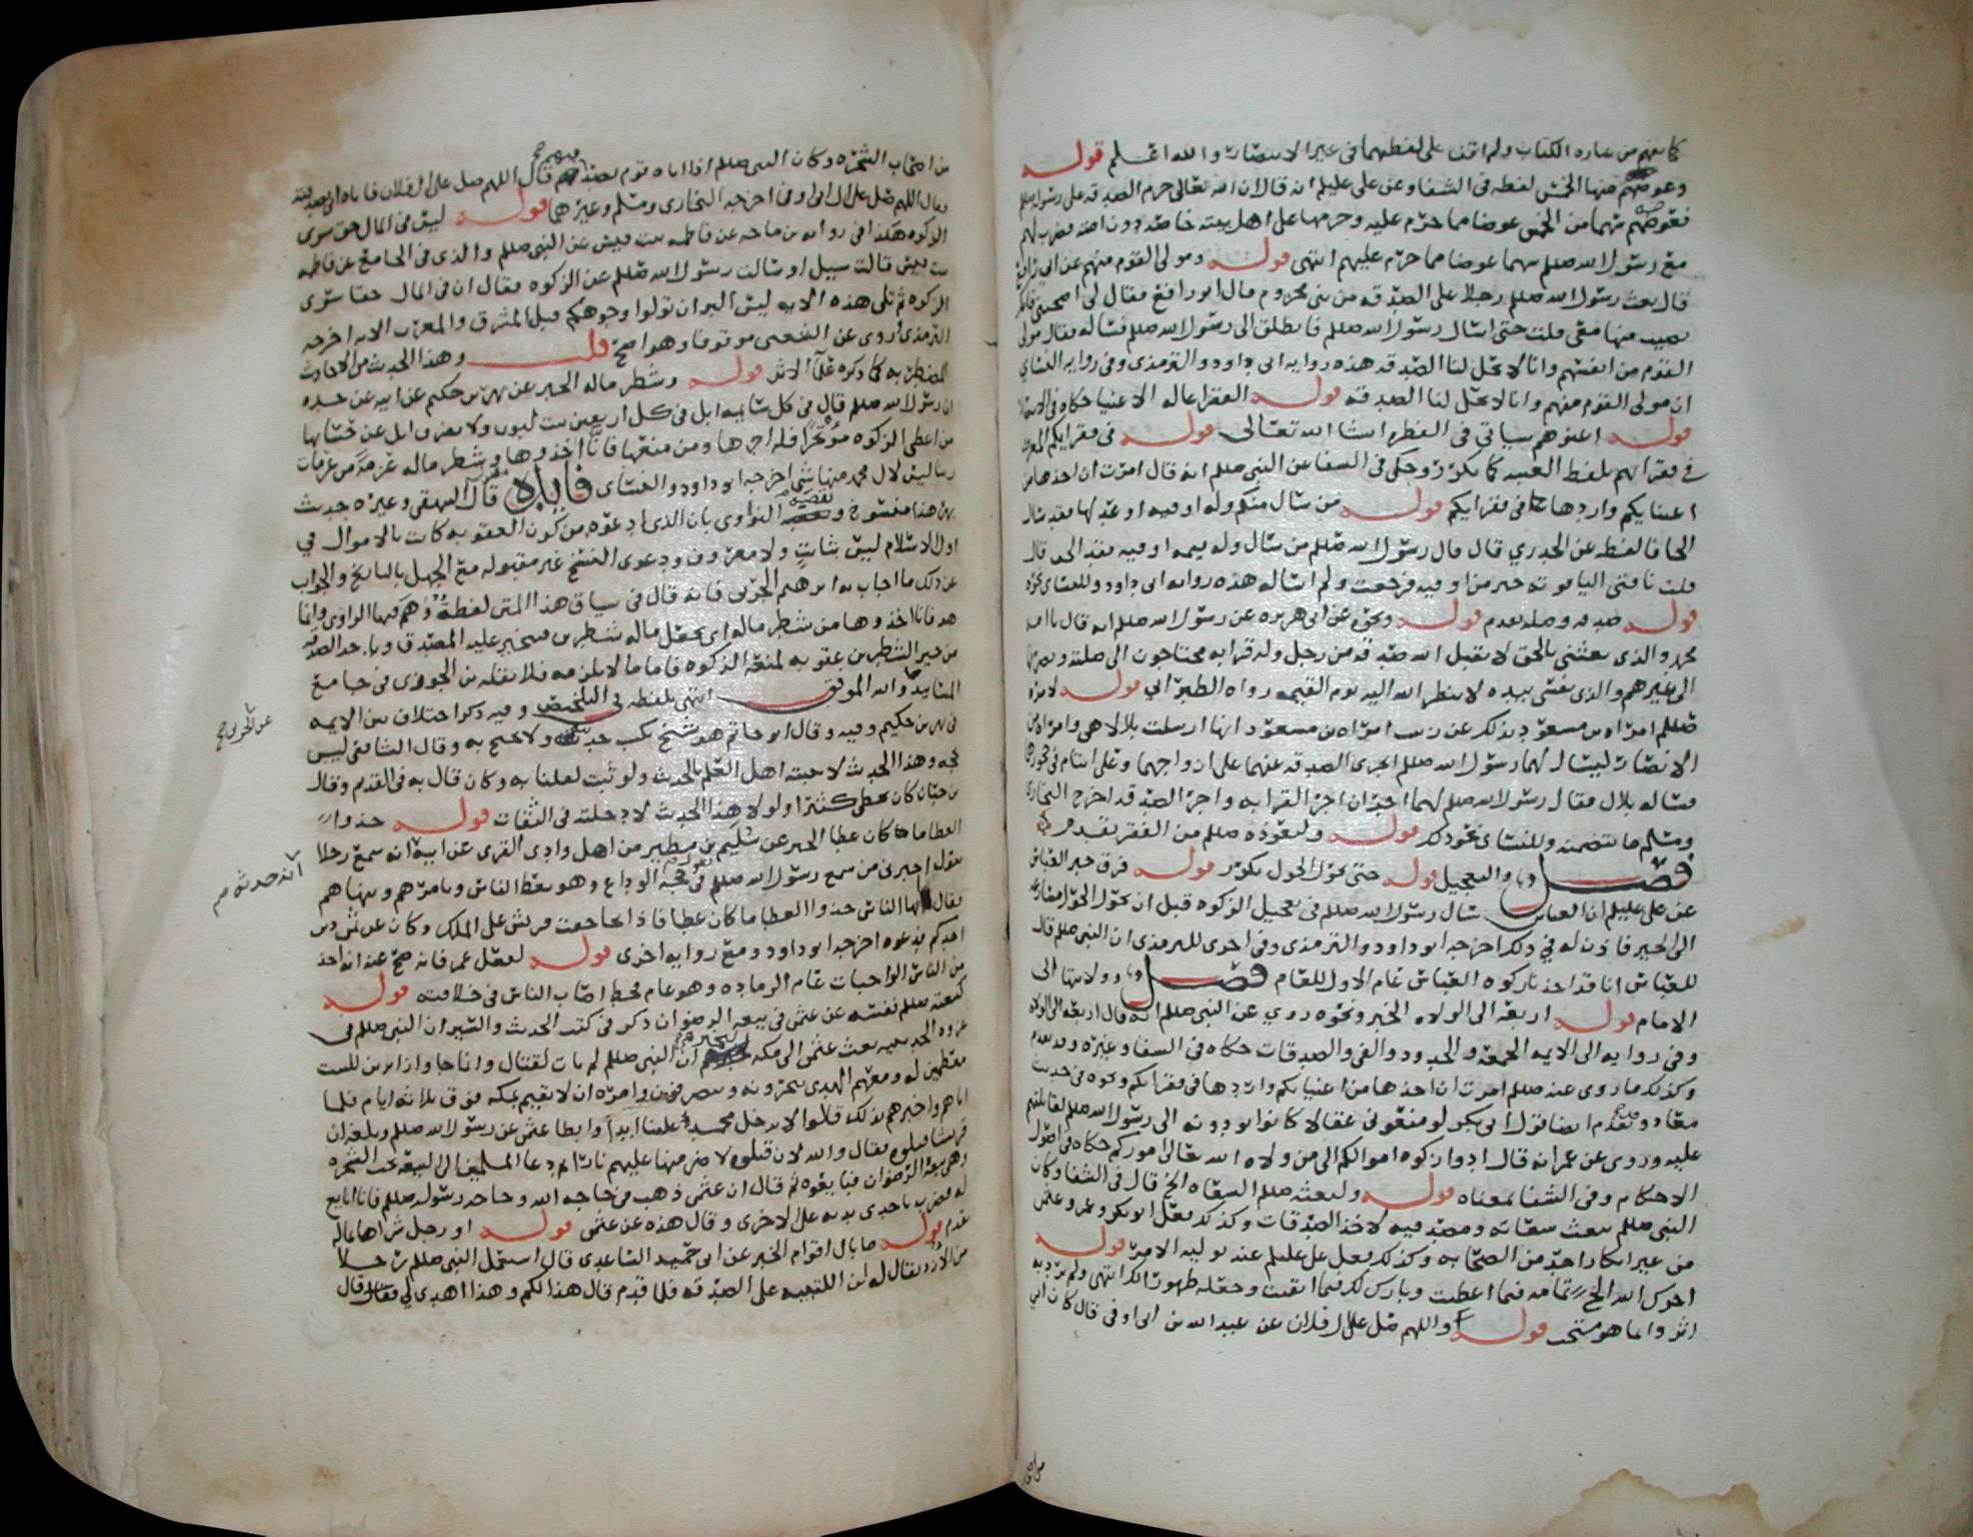 كما يفهم من عباره الكتاب ولم اقف على لفظهما في غير الانتصار والله اعلم قوله
وعوضهم منها الخمس لفظه في الشفا وعن علي عليلم انه قال ان الله تعالى حرم الصدقه على رسوله صللم
فعوضهم سهما من الخمس عوضا مما حرم عليه وحرمها على اهل بيته خاصه دون امته فضرب لهم
مع رسول الله صللم سهما عوضا مما حرم عليهم انتهى قوله ومولى القوم منهم عن ابي رافع
قال بعث رسول الله صللم رجلا على الصدقه من بني مخزوم فقال لابي رافع اصحبني فانك
تصيب منها معي قلت حتى اسال رسول الله صللم فانطلق الى رسول الله صللم فساله فقال مولى
القوم من انفسهم وانا لا تحل لنا الصدقه هذه روايه ابي داود والترمذي وفي روايه النسائي
ان مولى القوم منهم وانا لا تحل لنا الصدقه قوله الفقرا عاله الاغنيا حكاه في الانتصار
قوله اغنوهم سياتي في الفطره انشا الله تعالى قوله في فقرايكم المعروف
في فقرائهم بلفظ الغيبه كما تكرر وحكى في الشفا عن النبي صللم انه قال امرت ان اخذها من
اغنيايكم واردها في فقرايكم قوله من سال منكم وله اوقيه او عدلها فقد سال
الحافا لفظه عن الخدري قال قال رسول الله صللم من سال وله قيمه اوقيه فقد الحف قال
قلت ناقتي الياقوته خير من اوقيه فرجعت ولم اساله هذه روايه ابي داود وللنسائي نحوه
قوله صدقه وصله تقدم قوله ونحوه عن ابي هريره عن رسول الله صللم انه قال يا امه
محمد والذي بعثني بالحق لا يقبل الله صدقه من رجل وله قرابه محتاجون الى صلته ويصرفها
الى غيرهم والذي نفسي بيده لا ينظر الله اليه يوم القيمه رواه الطبراني قوله لامره
صللم امراه بن مسعود بذلك عن زينب امراه بن مسعود انها ارسلت بلالا هي وامراه من
الانصار ليسال لهما رسول الله صللم اتجزي الصدقه عنهما على ازواجهما وعلى ايتام في حجورهما
فساله بلال فقال رسول الله صللم لهما اجران اجر القرابه واجر الصدقه اخرج البخاري
ومسلم ما يتضمنه وللنسائي نحو ذلك قوله ولتعوذه صللم من الفقر تقدم
فصل والتعجيل قوله حتى تحول الحول تكرر قوله فرق خبر العباس
عن علي عليلم ان العباس سال رسول الله صللم في تعجيل الزكوه قبل ان تحول الحول مسارعه
الى الخير فاذن له في ذلك اخرجه ابو داود والترمذي وفي اخرى للترمذي ان النبي صللم قال
للعباس انا قد اخذنا زكوه العباس عام الاول للعام فصل وولايتها الى
الامام قوله اربعه الى الولاه الخبر ونحوه روي عن النبي صللم انه قال اربعه الى الولاه
وفي روايه الى الايمه الجمعه والحدود والفي والصدقات حكاه في الشفا وغيره وقد تقدم
وكذلك ما روي عنه صللم امرت ان اخذها من اغنيايكم واردها في فقرايكم ونحوه في حديث
معاذ وتقدم ايضا قول ابي بكر لو منعوني عقالا كانوا يودونه الى رسول الله صللم لقاتلتهم
عليه وروي عن عمر انه قال ادوا زكوه اموالكم الى من ولاه الله تعالى اموركم حكاه في اصول
الاحكام وفي الشفا بمعناه قوله ولبعثه صللم السعاه الخ قال في الشفا وكان
النبي صللم يبعث سعاته ومصدقيه لاخذ الصدقات وكذلك فعل ابو بكر وعمر وعثمن
من غير انكار احد من الصحابه وكذلك فعل علي عليلم عند توليه الامر قوله
اجرك الله الخ تمامه فيما اعطيت وبارك لك فيما ابقيت وجعله طهورا لك انتهى ولم يرد به
اثر وانما هو مستحب قوله واللهم صل على ال فلان عن عبد الله بن ابي اوفى قال كان ابي
من اصحاب الشجره وكان النبي صللم اذا اتاه قوم بصدقتهم قال اللهم صل على ال فلان فاتاه ابي بصدقته
فقال اللهم صل على ال ابي اوفى اخرجه البخاري ومسلم وغيرهما قوله ليس في المال حق سوى
الزكوه هكذا في روايه بن ماجه عن فاطمه بنت قيس عن النبي صللم والذي في الجامع عن فاطمه
بنت قيس قالت سيل او سالت رسول الله صللم عن الزكوه فقال ان في المال حقا سوى
الزكوه ثم تلى هذه الايه ليس البر ان تولوا وجوهكم قبل المشرق والمغرب الايه اخرجه
الترمذي وروي عن الشعبي موقوفا وهو اصح قلت وهذا الحديث من الاحاديث
المضطربه كما ذكره علما الاثر قوله وشطر ماله الخبر عن بهز بن حكيم عن ابيه عن جده
ان رسول الله صللم قال في كل سايمه ابل في كل اربعين بنت لبون ولا يفرق ابل عن حسابها
من اعطى الزكوه مؤتجرا فله اجرها ومن منعها فانا اخذوها وشطر ماله عزمه من عزمات
ربنا ليس لال محمد منها شي اخرجه ابو داود والنسائي فائده قال البيهقي وغيره حديث
بهز هذا منسوخ وتعقبه النواوي بان الذي ادعوه من كون العقوبه كانت بالاموال في
اول الاسلام ليس بثابت ولا معروف ودعوى النسخ غير مقبوله مع الجهل بالتاريخ والجواب
عن ذلك ما اجاب به ابرهيم الحربي فانه قال في سياق هذا المتن لفظة وهم فيها الراوي وانما
هو فانا اخذوها من شطر ماله اي نجعل ماله شطرين فيتخير عليه المصدق وياخذ الصدقه
من خير الشطرين عقوبه لمنعه الزكوه فاما ما لا يلزمه فلا نقله بن الجوزي في جامع
المسانيد والله الموفق انتهى بلفظه في التلخيص وفيه ذكر اختلاف بين الايمه
في بهز بن حكيم وفيه وقال ابو حاتم هو شيخ يكتب حديثه ولا يحتج به وقال الشافعي ليس
بحجه وهذا الحديث لا يثبته اهل العلم بالحديث ولو ثبت لعلنا به وكان قال به في القديم وقال
بن حبان كان يخطي كثيرا ولولا هذا الحديث لادخلته في الثقات قوله خذوا
العطا ما كان عطا الخبر عن سليم بن مطير من اهل وادي القرى عن ابيه انه سمع رجلا
يقول اخبرني من سمع رسول الله صللم في حجه الوداع وهو يعظ الناس ويامرهم وينهاهم
فقال ايها الناس خذوا العطا ما كان عطا فاذا تجاحفت قريش على الملك وكان عن دين
احدكم فدعوه اخرجه ابو داود ومع روايه اخرى قوله لفعل عمر فانه صح عنه انه اخذ
من الناس الواجبات عام الرماده وهو عام قحط اصاب الناس في خلافته قوله
كبيعته صللم نفسه عن عثمن في بيعه الرضوان ذكر في كتب الحديث والسير ان النبي صللم في
غزوه الحديبيه بعث عثمن الى مكه ليخبرهم ان النبي صللم لم يات لقتال وانما جا وازايرين للبيت
معظمين له ومعهم الهدي ينحرونه وينصرفون وامره ان لا يقيم بمكه فوق ثلاثه ايام فلما
اتاهم واخبرهم بذلك قالوا لا يدخل محمد علينا ابدا وابطا عثمن عن رسول الله صللم وبلغه ان
قريشا قتلوه فقال والله لان قتلوه لاضرمنها عليهم نارا ثم دعا المسلمين الى البيعه تحت الشجره
وهي بيعه الرضوان فبايعوه ثم قال ان عثمن ذهب في حاجه الله وحاجه رسوله صللم فانا ابايع
له فضرب باحدى يديه على الاخرى وقال هذه عن عثمن قوله او رجل شراها بماله
تقدم قوله ما بال اقوام الخبر عن ابي حميد الساعدي قال استعمل النبي صللم رجلا
من الازد يقال له ابن اللتبيه على الصدقه فلما قدم قال هذا لكم وهذا اهدي لي فقال قال